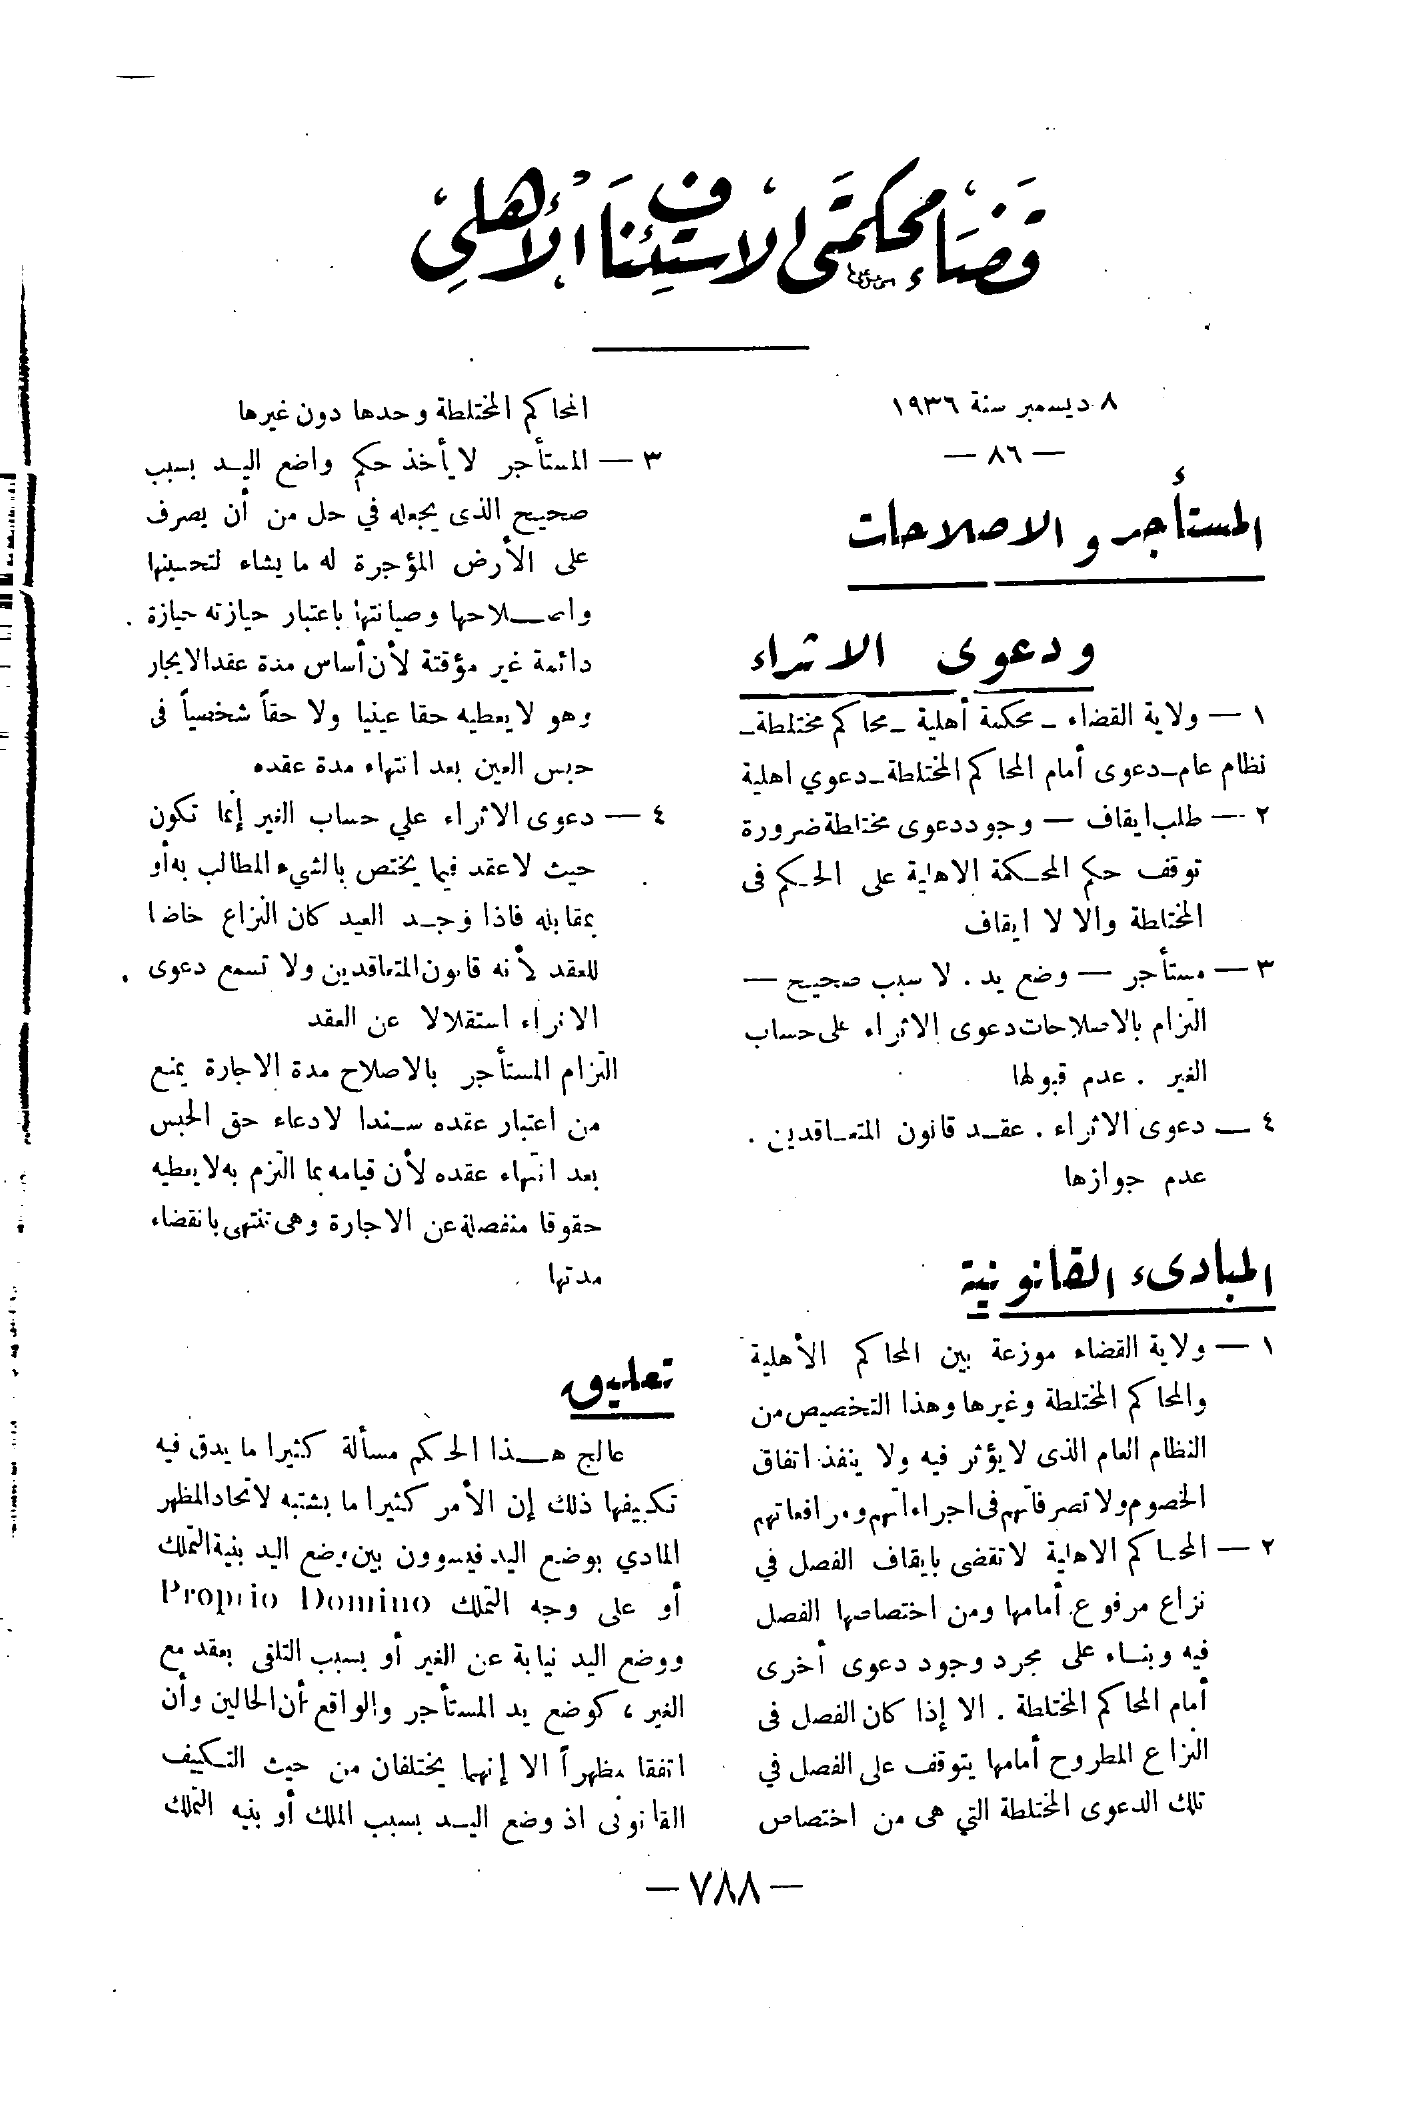 قضاء محكمتى الاستئناف الأهلى
٨ ديسمبر سنة ١٩٣٦
— ٨٦ —
المستأجر والاصلاحات
ودعوى الاثراء
١ — ولاية القضاء ـ محكمة أهلية ـ محاكم مختلطة ـ
نظام عام ـ دعوى أمام المحاكم المختلطة ـ دعوي اهلية
٢ — طلب ايقاف — وجود دعوى مختلطة ضرورة
توقف حكم المحكمة الاهلية على الحكم فى
المختلطة والا لا ايقاف
٣ — مستأجر — وضع يد . لا سبب صحيح —
التزام بالاصلاحات دعوى الاثراء على حساب
الغير . عدم قبولها
٤ — دعوى الاثراء . عقد قانون المتعاقدين .
عدم جوازها
المبادىء القانونية
١ — ولاية القضاء موزعة بين المحاكم الأهلية
والمحاكم المختلطة وغيرها وهذا التخصيص من
النظام العام الذى لا يؤثر فيه ولا ينفذ اتفاق
الخصوم ولا تصرفاتهم فى اجراءاتهم ومرافعاتهم
٢ — المحاكم الاهلية لا تقضى بايقاف الفصل في
نزاع مرفوع أمامها ومن اختصاصها الفصل
فيه وبناء على مجرد وجود دعوى أخرى
أمام المحاكم المختلطة . الا إذا كان الفصل فى
النزاع المطروح أمامها يتوقف على الفصل في
تلك الدعوى المختلطة التي هى من اختصاص
المحاكم المختلطة وحدها دون غيرها
٣ — المستأجر لا يأخذ حكم واضع اليد بسبب
صحيح الذى يجعله في حل من أن يصرف
على الأرض المؤجرة له ما يشاء لتحسينها
واصلاحها وصيانتها باعتبار حيازته حيازة
دائمة غير مؤقتة لأن أساس مدة عقد الايجار
وهو لا يعطيه حقا عينيا ولا حقاً شخصياً فى
حبس العين بعد انتهاء مدة عقده
٤ — دعوى الاثراء علي حساب الغير إنما تكون
حيث لا عقد فيما يختص بالشيء المطالب به أو
بمقابله فاذا وجد العيد كان النزاع خاضا
للعقد لأنه قانون المتعاقدين ولا تسمع دعوى
الاثراء استقلالا عن العقد
التزام المستأجر بالاصلاح مدة الاجارة يمنع
من اعتبار عقده سندا لادعاء حق الحبس
بعد انتهاء عقده لأن قيامه بما التزم به لا يعطيه
حقوقا منفصلة عن الاجارة وهى تنتهى بانقضاء
مدتها
تعليق
عالج هذا الحكم مسألة كثيرا ما يدق فيه
تكييفها ذلك إن الأمر كثيرا ما يشتبه لاتحاد المظهر
المادي بوضع اليد فيسوون بين وضع اليد بنية التملك
أو على وجه التملك Proprio Domino
ووضع اليد نيابة عن الغير أو بسبب التلقى بعقد مع
الغير ، كوضع يد المستأجر والواقع أن الحالين وأن
اتفقا مظهراً الا إنهما يختلفان من حيث التكييف
القانونى اذ وضع اليد بسبب الملك أو بنيه التملك
— ٧٨٨ —